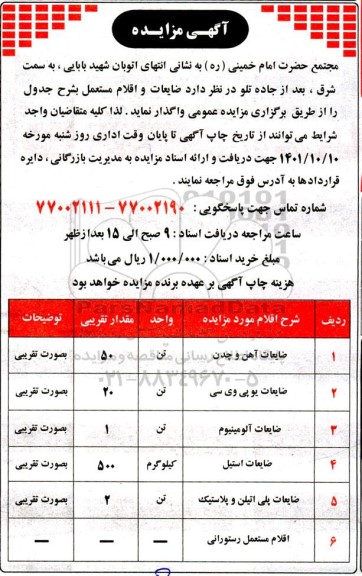 آگهی مزایده
مجتمع حضرت امام خمینی (ره) به نشانی انتهای اتوبان شهید بابایی ، به سمت
شرق ، بعد از جاده تلو در نظر دارد ضایعات و اقلام مستعمل بشرح جدول
را از طریق برگزاری مزایده عمومی واگذار نماید . لذا کلیه متقاضیان واجد
شرایط می توانند از تاریخ چاپ آگهی تا پایان وقت اداری روز شنبه مورخه
۱۴۰۱/۱۰/۱۰ جهت دریافت و ارائه اسناد مزایده به مدیریت بازرگانی ، دایره
قراردادها به آدرس فوق مراجعه نمایند .
شماره تماس جهت پاسخگویی : ۷۷۰۰۲۱۹۰ – ۷۷۰۰۲۱۱۱
ساعت مراجعه دریافت اسناد : ۹ صبح الی ۱۵ بعدازظهر
مبلغ خرید اسناد : ۱/۰۰۰/۰۰۰ ریال می باشد
هزینه چاپ آگهی بر عهده برنده مزایده خواهد بود
ردیف شرح اقلام مورد مزایده واحد مقدار تقریبی توضیحات
۱ ضایعات آهن و چدن تن ۵۰ بصورت تقریبی
۲ ضایعات یو پی وی سی تن ۲۰ بصورت تقریبی
۳ ضایعات آلومینیوم تن ۱ بصورت تقریبی
۴ ضایعات استیل کیلوگرم ۵۰۰ بصورت تقریبی
۵ ضایعات پلی اتیلن و پلاستیک تن ۲ بصورت تقریبی
۶ اقلام مستعمل رستورانی — — —
ParsNamadData
۰۲۱-۸۸۳۴۹۶۷۰-۵